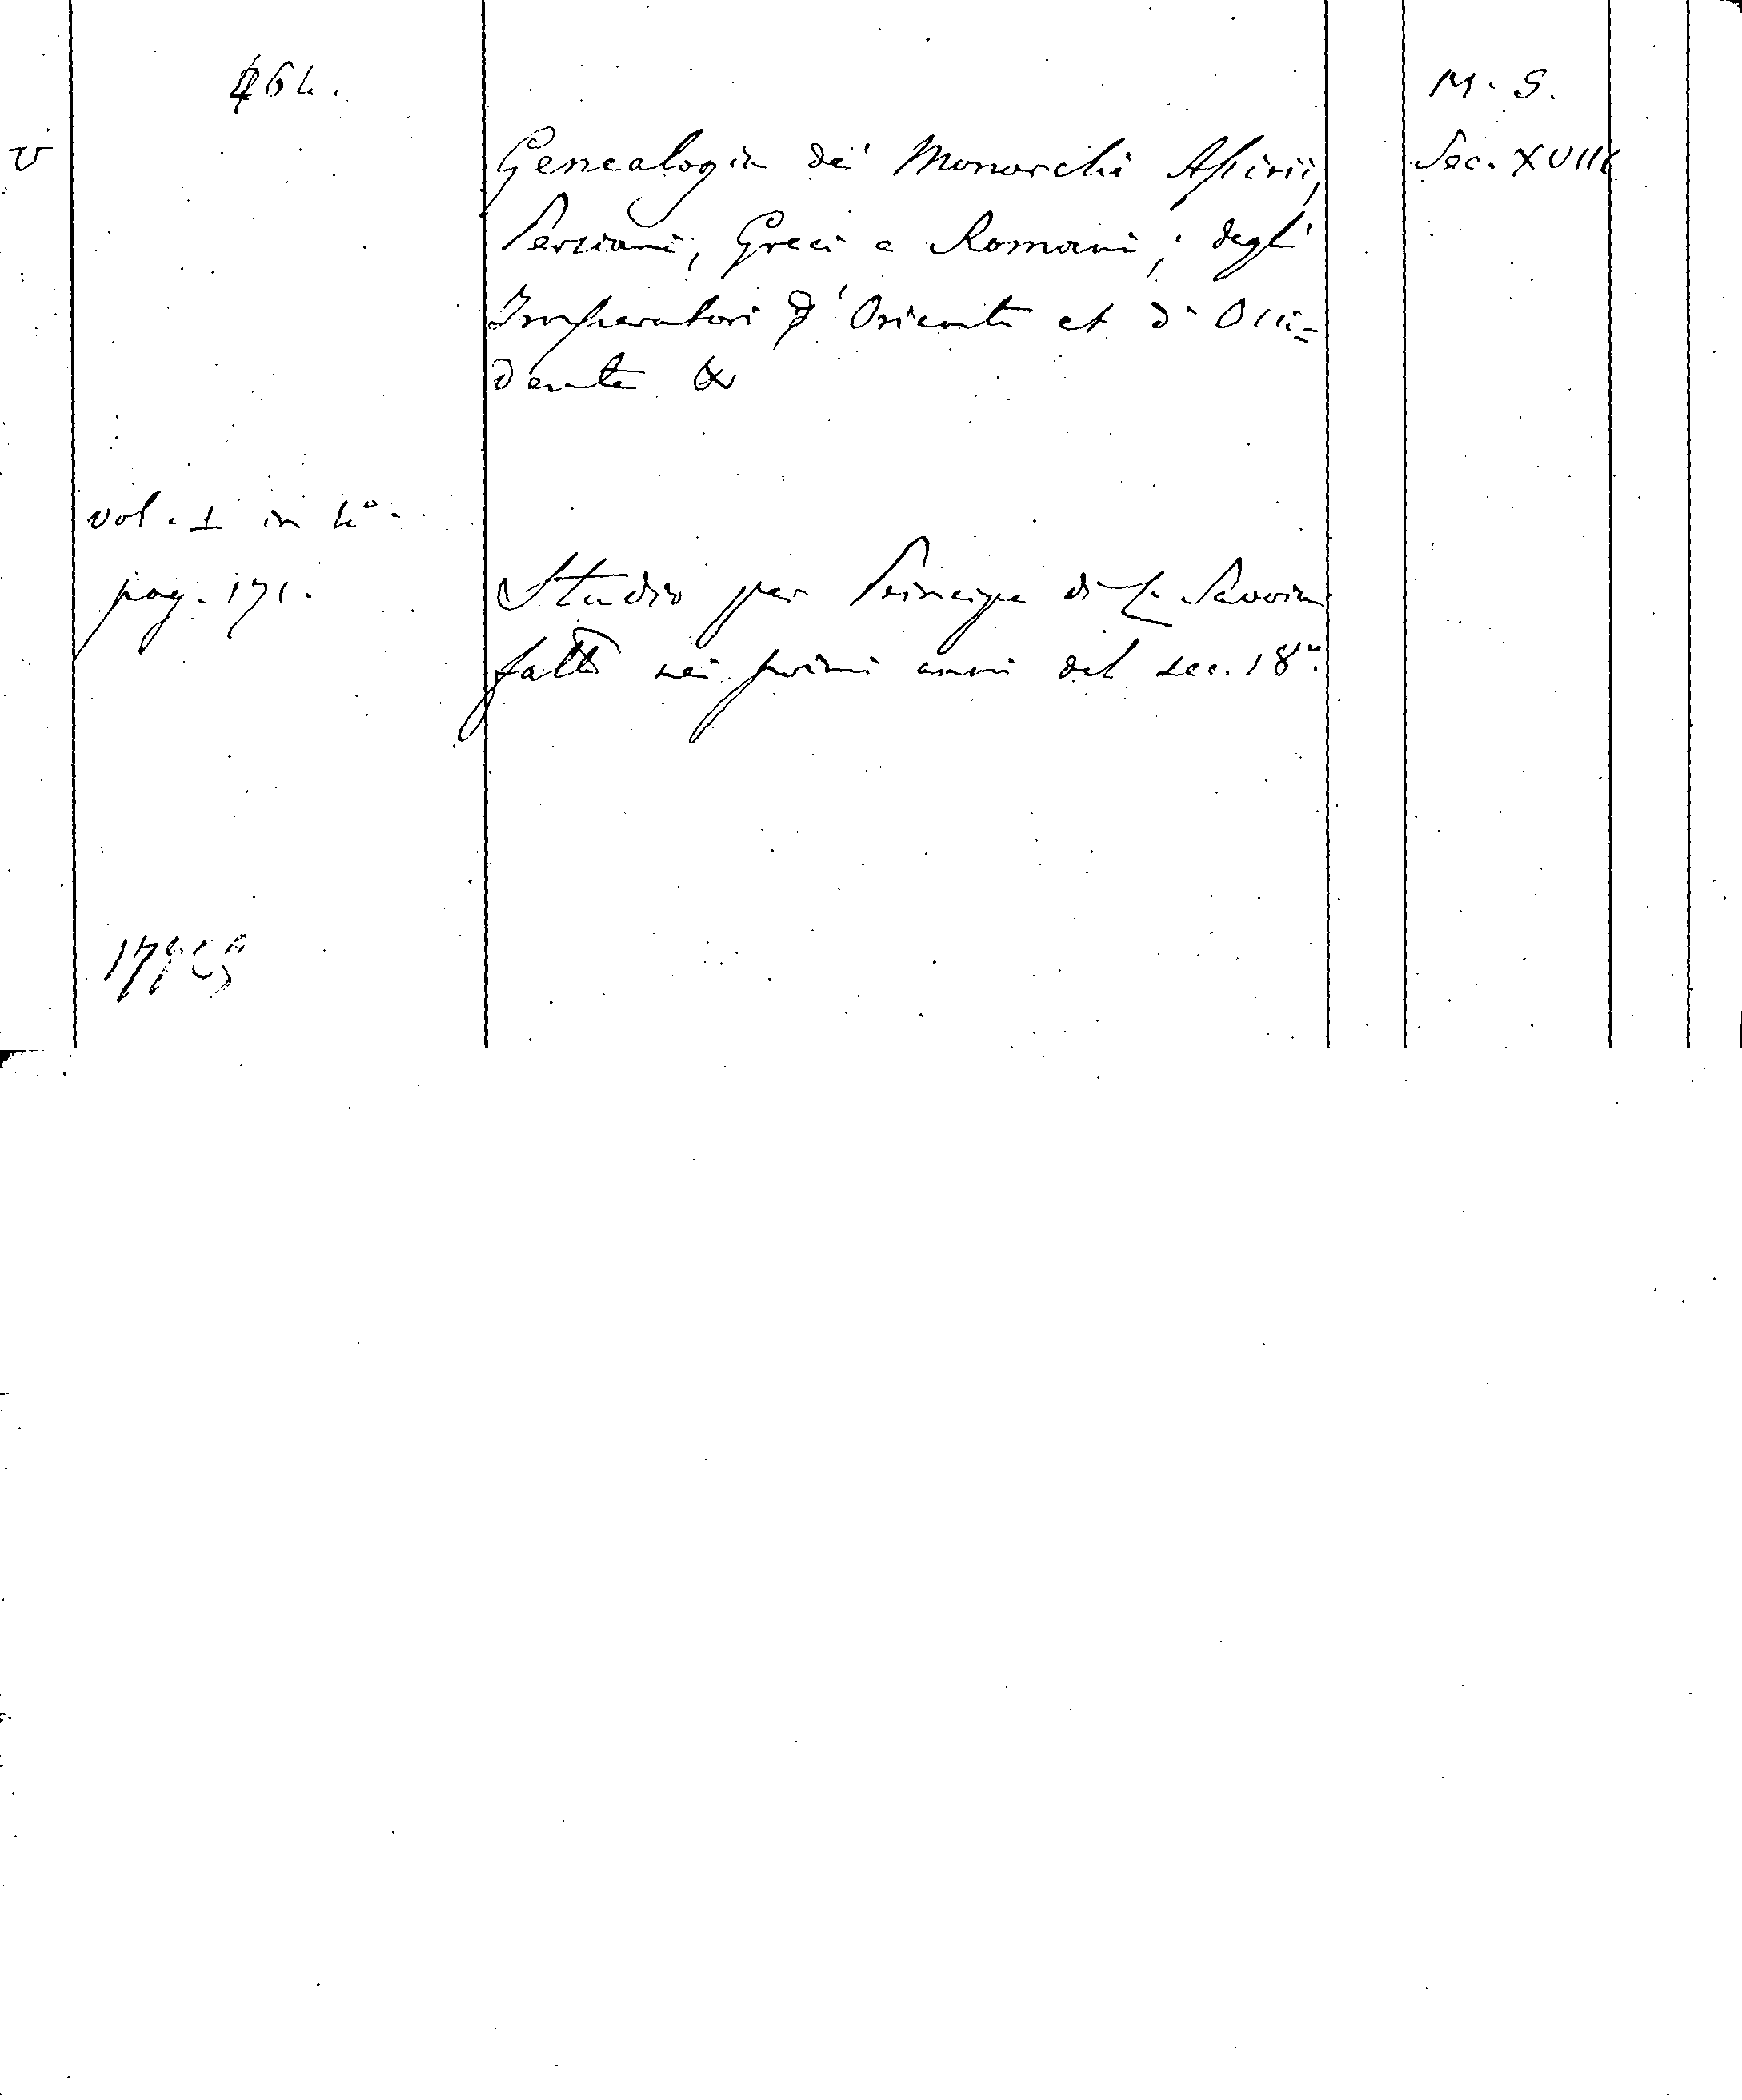 464.
M. S.
V
Genealogia de' Monarchi Assirii,
Sec. XVIII
Persiani, Greci e Romani; degli
Imperatori d'Oriente et d'Occi=
dente &
vol. 1 in 4°.
pag. 171.
Studio per Principe di Savoia
fatto nei primi anni del sec. 18°.